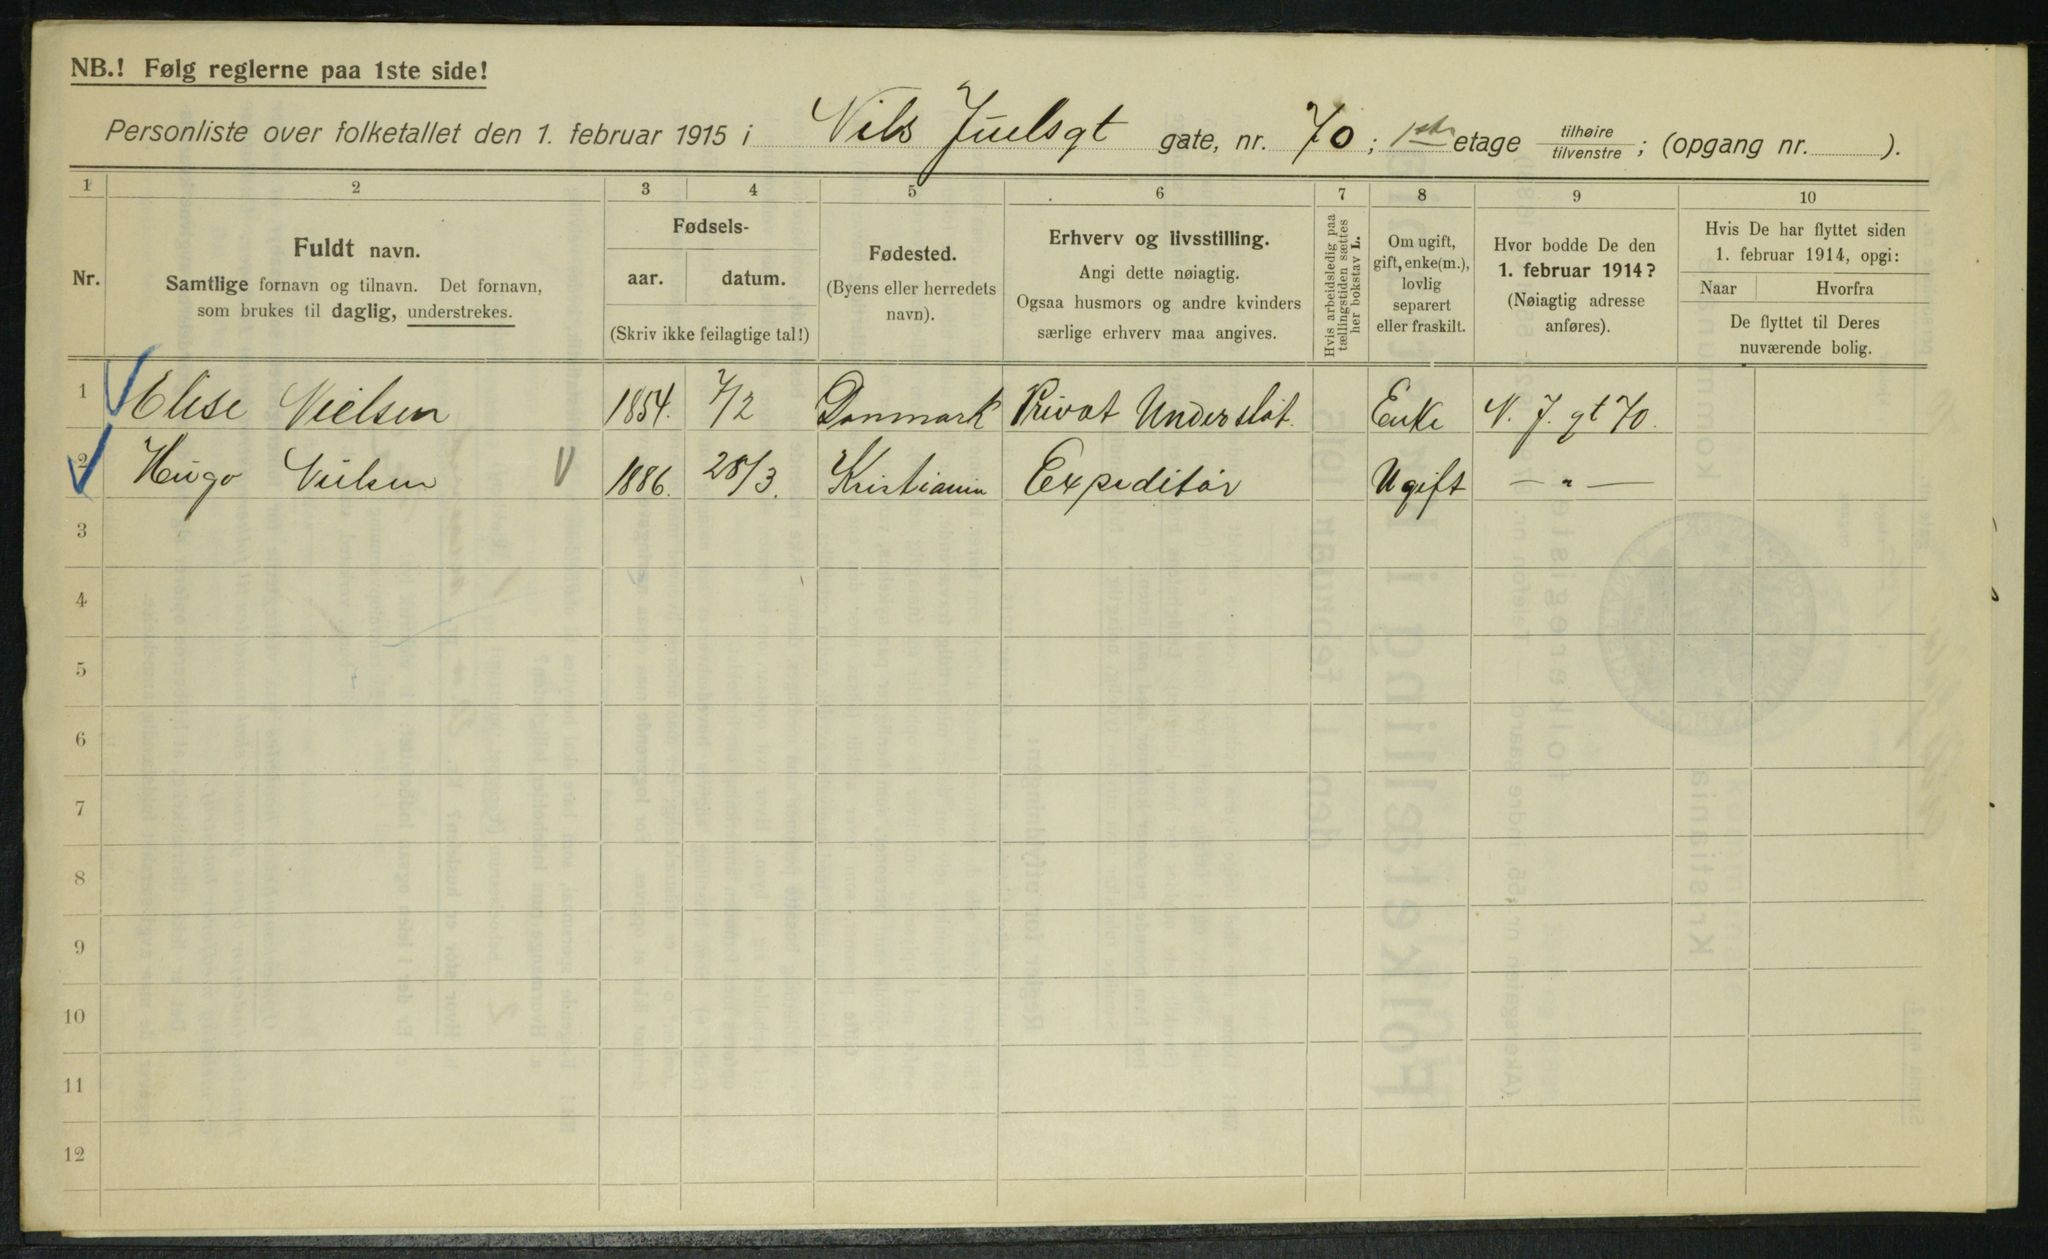 NB.! Følg reglerne paa 1ste side!
Personliste over folketallet den 1. februar 1915 i Nils Juelsgt gate, nr. 70; 1ste etage tilhøire tilvenstre; (opgang nr. ).
1 2 3 4 5 6 7 8 9 10
Nr.
Fuldt navn.
Samtlige fornavn og tilnavn. Det fornavn,
som brukes til daglig, understrekes.
Fødsels-
aar. datum.
(Skriv ikke feilagtige tal!)
Fødested.
(Byens eller herredets
navn).
Erhverv og livsstilling.
Angi dette nøiagtig.
Ogsaa husmors og andre kvinders
særlige erhverv maa angives.
Hvis arbeidsledig paa
tællingstiden sættes
her bokstav L.
Om ugift,
gift, enke(m.),
lovlig
separert
eller fraskilt.
Hvor bodde De den
1. februar 1914?
(Nøiagtig adresse
anføres).
Hvis De har flyttet siden
1. februar 1914, opgi:
Naar Hvorfra
De flyttet til Deres
nuværende bolig.
1 Elise Nielsen 1854. 7/2 Danmark Privat Understøt. Enke N. J. gt 70.
2 Hugo Nielsen 1886. 28/3. Kristiania Expeditør Ugift — „ —
3
4
5
6
7
8
9
10
11
12